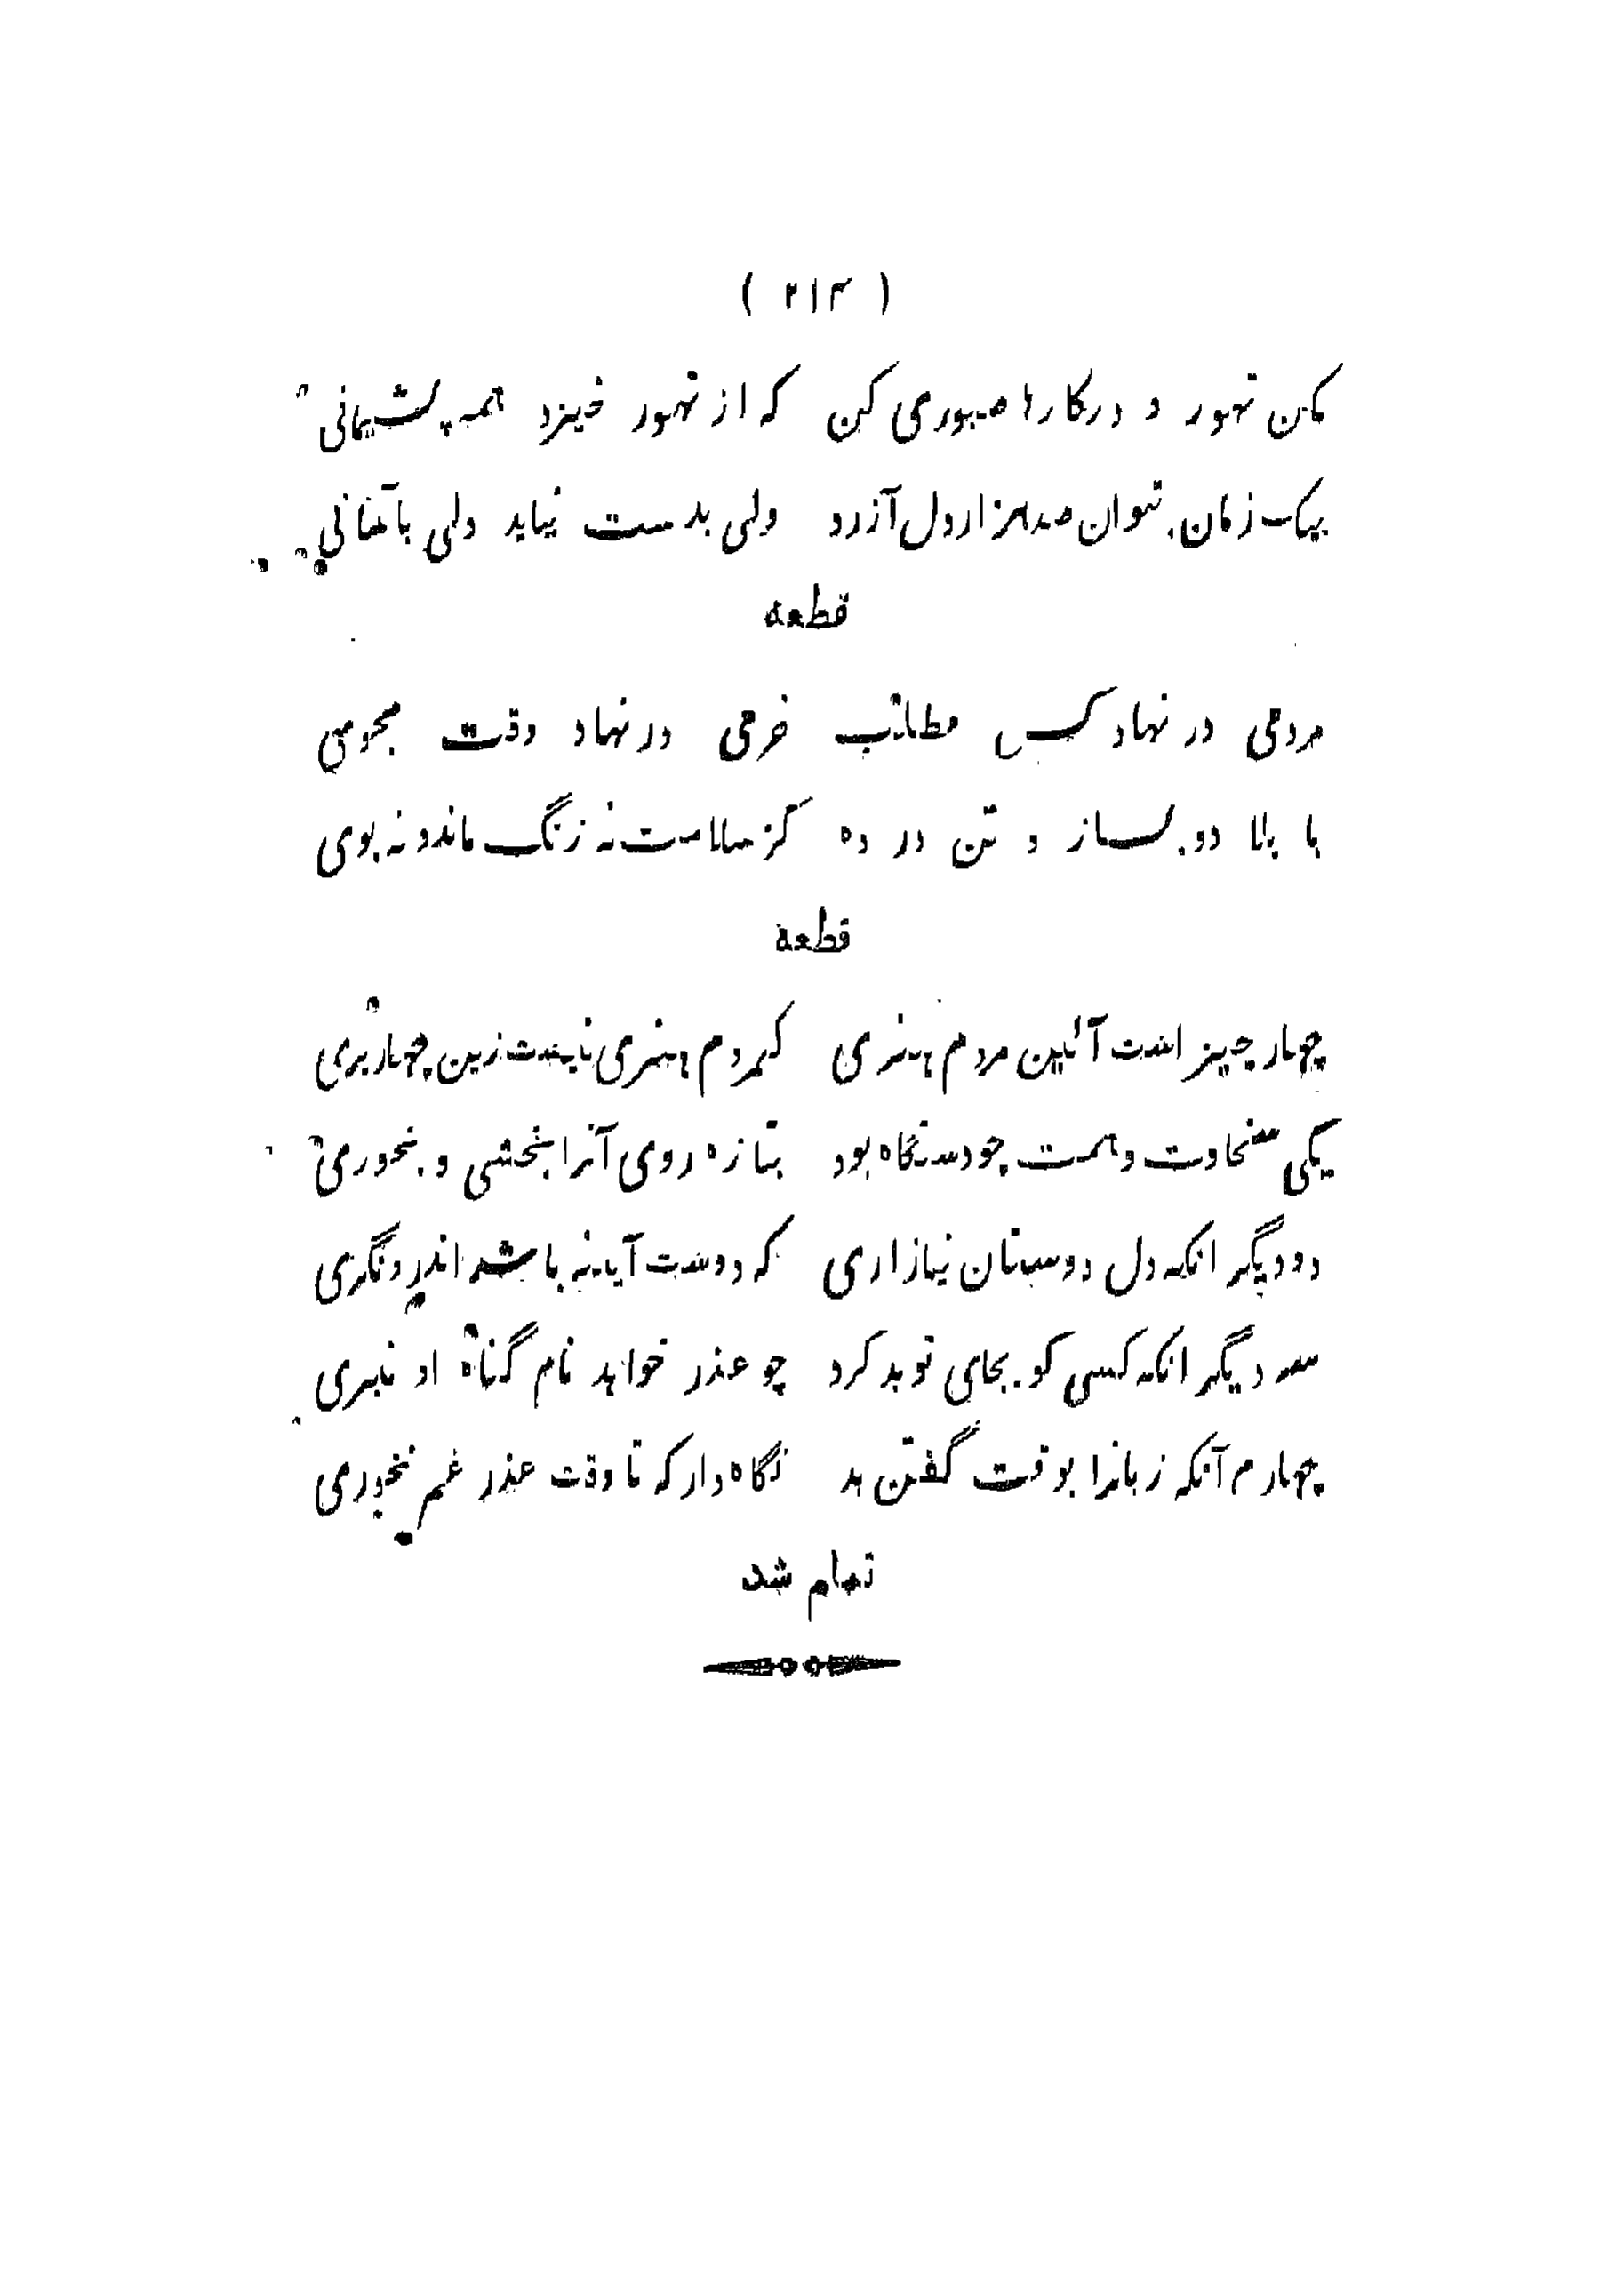 ( ٢١٣ )
مکن تهور و درکارها صبوری کن که از تهور خیزد همه پشیمانی
بیک زمان بتوان صدهزار دل آزرد ولی بدست نیاید دلی بآسانی
قطعه
مردمی در نهاد کس مطلب خرمی در نهاد وقت مجوی
با بلا دو بساز و تن در ده کز سلامت نه رنگ ماند و نه بوی
قطعه
چهار چیز است آئین مردم هنری که مردم هنری نیست زین چهار بری
یکی سخاوت و همت چو دستگاه بود بتازه روی آنرا ببخشی و بخوری
دو دیگر انکه دل دوستان نیازاری که دوست آینه باشد اندرو نگری
سه دیگر انکه کسی کو بجای تو بد کرد چو عذر خواهد نام گناه او نبری
چهارم آنکه زبانرا بوقت گفتن بد نگاه دار که تا وقت عذر غم نخوری
تمام شد